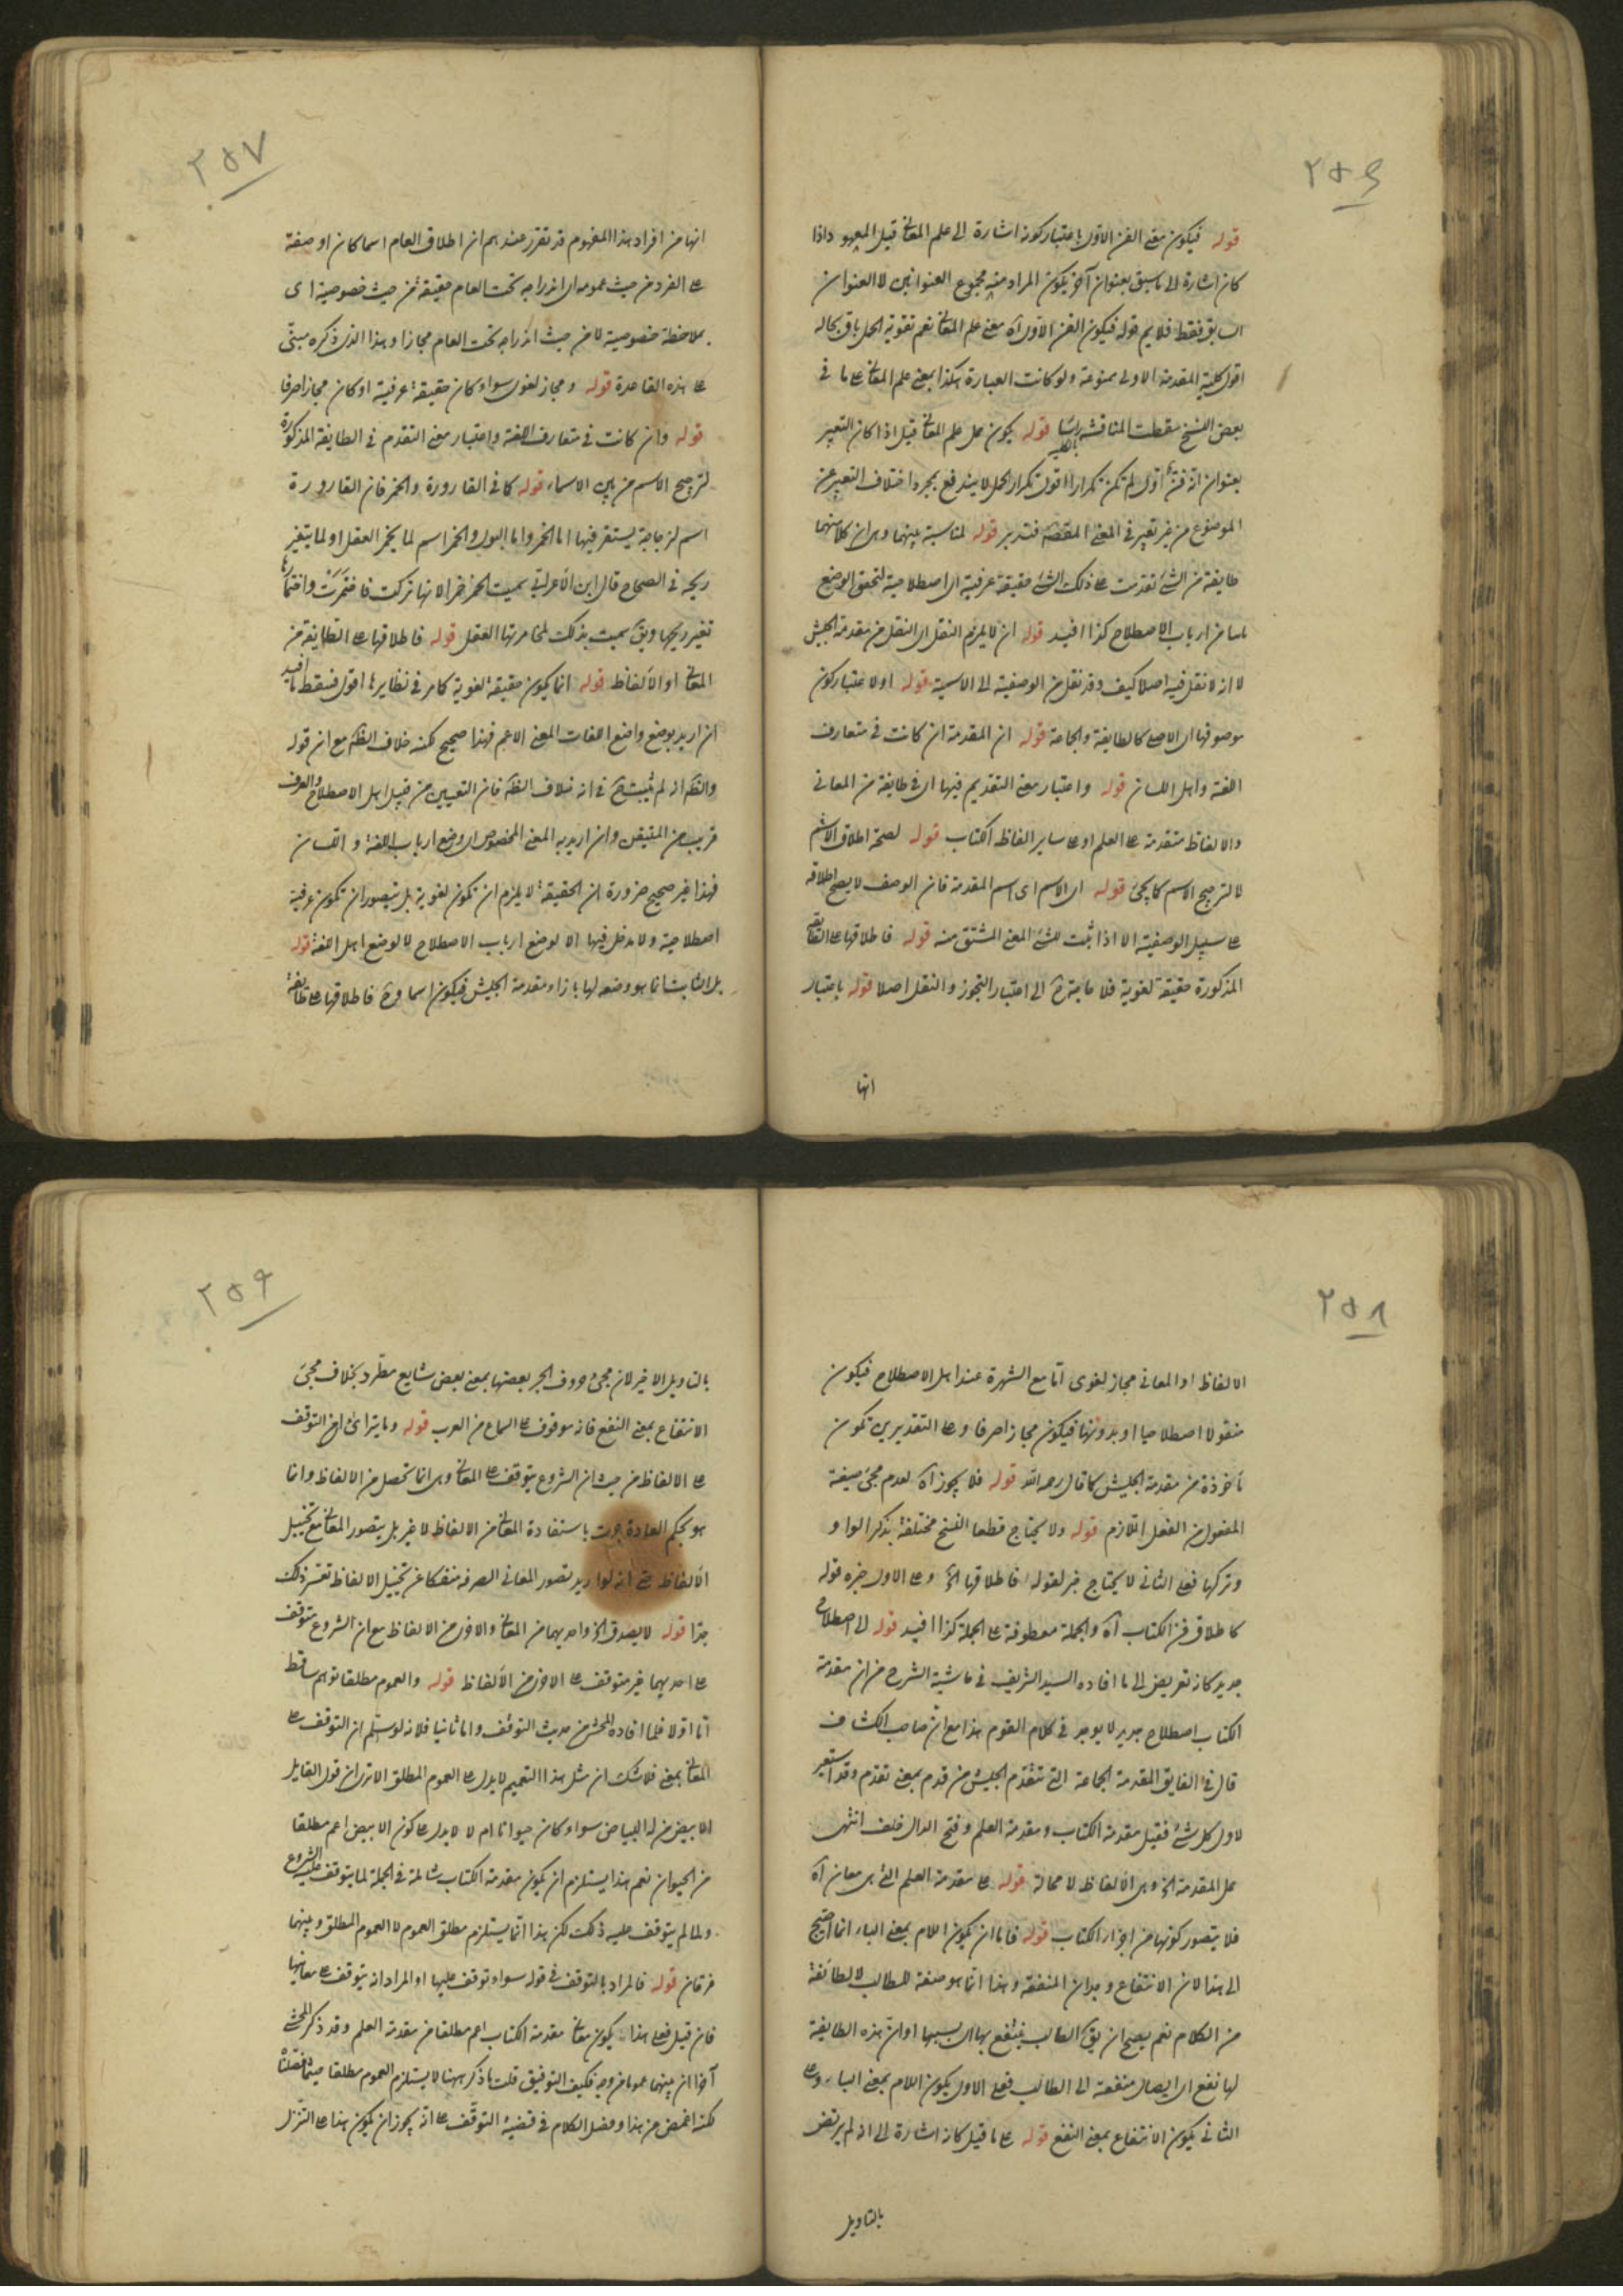 ٢٥٦
قوله فيكون معنى الفن الاول باعتبار كونه اشارة الى علم المعانى قيل المعهود اذا
كان اشارة الى ما سبق بعنوان آخر يكون المراد منه مجموع العنوانين لا العنوان
السابق فقط فلا يتم قوله فيكون الفن الاول آه معنى علم المعانى نعم تقوية الحمل باق بحاله
اقول كلية المقدمة الاولى ممنوعة ولو كانت العبارة هكذا بمعنى علم المعانى على ما فى
بعض النسخ سقطت المناقشة قوله يكون حمل علم المعانى قيل اذا كان التعبير
بعنوان انه فن اول لم تكن تكرارا اقول تكرار الحمل لا يندفع بمجرد اختلاف التعبير عن
الموضوع من غير تغيير فى المعنى فتدبر قوله لمناسبة بينهما وهى ان كلا منهما
طايفة من الشئ تقدمت على ذلك الشئ حقيقة عرفية اى اصطلاحية لتحقق الوضع
من ارباب الاصطلاح كذا افيد قوله ان لا يلزم النقل اى النقل من مقدمة الجيش
لا انه لا نقل فيه اصلا كيف وقد نقل من الوصفية الى الاسمية قوله اولا عتبار كون
موصوفها اى الاصلى كالطايفة والجماعة قوله ان المقدمة ان كانت فى متعارف
اللغة واهل اللسان قوله واعتبار معنى التقديم فيها اى فى طايفة من المعانى
والالفاظ متقدمة على العلم او على ساير الفاظ الكتاب قوله لصحة اطلاق الاسم
لا لترجيح الاسم كما يجئ قوله اى الاسم اى اسم المقدمة فان الوصف لا يصح اطلاقه
على سبيل الوصفية الا اذا ثبت للشئ المعنى المشتق منه قوله فاطلاقها على الطايفة
المذكورة حقيقة لغوية فلا حاجة ح الى اعتبار التجوز والنقل اصلا قوله باعتبار
انها
٢٥٧
انها من افراد هذا المفهوم قد تقرر عندهم ان اطلاق العام اسما كان او صفة
على الفرد من حيث عمومه اى اندراجه تحت العام حقيقة من حيث خصوصية اى
بملاحظة خصوصية لا من حيث اندراجه تحت العام مجازا وهذا الذى ذكره مبنى
على هذه القاعدة قوله ومجاز لغوى سواء كان حقيقة عرفية او كان مجازا صرفا
قوله وان كانت فى متعارف اللغة واعتبار معنى التقدم فى الطايفة المذكورة
لترجيح الاسم من بين الاسماء قوله كما فى القارورة والخمر فان القارورة
اسم لزجاجة يستقر فيها اما الخمر واما البول والخمر اسم لما يخمر العقل او لما يتغير
ريحه فى الصحاح قال ابن الاعرابى سميت الخمر خمرا لانها تركت فاختمرت واختمارها
تغير ريحها ويق سميت بذلك لمخامرتها العقل قوله فاطلاقها على الطايفة من
المعانى او الالفاظ قوله انما يكون حقيقة لغوية كما مر فى نظايرها اقول فسقط ما افيد
ان اريد بوضع واضع اللغات المعنى الاعم فهذا صحيح لكنه خلاف الظ مع ان قوله
والظ انه لم يثبت ح فى انه خلاف الظ فان التعيين من قبيل اهل الاصطلاح والعرف
قريب من المتيقن وان اريد به المعنى المخصوص اى وضع ارباب اللغة واللسان
فهذا غير صحيح ضرورة ان الحقيقة لا يلزم ان تكون لغوية بل يتصور ان تكون عرفية
اصطلاحية ولا مدخل فيها الا لوضع ارباب الاصطلاح لا لوضع اهل اللغة قوله
بل الثابت انما هو وضعه لها بازاء مقدمة الجيش فيكون اسما وح فاطلاقها على طايفة
٢٥٨
الالفاظ او المعانى مجاز لغوى اما مع الشهرة عند اهل الاصطلاح فيكون
منقولا اصطلاحيا او بدونها فيكون مجازا صرفا وعلى التقديرين تكون
مأخوذة من مقدمة الجيش كما قال رحمه الله قوله فلا يجوز آه لعدم مجئ صيغة
المفعول من الفعل اللازم قوله ولا يحتاج قطعا النسخ مختلفة بذكر الواو
وتركها فعلى الثانى لا يحتاج خبر لقوله فاطلاقها الخ وعلى الاول خبره قوله
كاطلاق فن الكتاب آه والجملة معطوفة على الجملة كذا افيد قوله الى اصطلاح
جديد كانه تعريض الى ما افاده السيد الشريف فى حاشية الشرح من ان مقدمة
الكتاب اصطلاح جديد لا يوجد فى كلام القوم هذا مع ان صاحب الكشاف
قال فى الفايق المقدمة الجماعة التى تتقدم الجيش من قدم بمعنى تقدم وقد استعير
لاول كل شئ فقيل مقدمة الكتاب ومقدمة العلم وفتح الدال خلف انتهى
حمل المقدمة الخ وهى الالفاظ لا محالة قوله على مقدمة العلم التى هى معان آه
فلا يتصور كونها من اجزاء الكتاب قوله فاما ان يكون اللام بمعنى الباء انما احتيج
الى هذا لان الانتفاع وجدان المنفعة وهذا انما هو صفة للطالب لا لطائفة
من الكلام نعم يصح ان يق الطالب ينتفع بها اى بسببها او ان هذه الطايفة
لها نفع اى ايصال منفعة الى الطالب فعلى الاول يكون اللام بمعنى الباء وعلى
الثانى يكون الانتفاع بمعنى النفع قوله على ما قيل كانه اشارة الى انه لم يرتض
بالتاويل
٢٥٩
بالتاويل الاخير لان مجئ حروف الجر بعضها بمعنى بعض شايع مطرد بخلاف مجئ
الانتفاع بمعنى النفع فانه موقوف على السماع من العرب قوله وما يتراءى من التوقف
على الالفاظ من حيث ان الشروع يتوقف على المعانى وهى انما تحصل من الالفاظ وانما
هو بحكم العادة جرت باستفادة المعانى من الالفاظ لا غير بل يتصور المعانى مع تخييل
الالفاظ حتى انه لو اريد تصور المعانى الصرفه منفكا عن تخييل الالفاظ تعسر ذلك
جدا قوله لا يصدق الخ واحديهما من المعانى والاخرى من الالفاظ مع ان الشروع متوقف
على احديهما غير متوقف على الاخرى من الالفاظ قوله والعموم مطلقا توهم ساقط
اما اولا فلما افاده المحشى من حديث التوقف واما ثانيا فلانه لو سلم ان التوقف على
المعانى بمعنى فلا شك ان مثل هذا التعميم لا يدل على العموم المطلق الا ترى ان قول القايل
الابيض من له البياض سواء كان حيوانا ام لا لا يدل على كون الابيض اعم مطلقا
من الحيوان نعم هذا يستلزم ان يكون مقدمة الكتاب شاملة فى الجملة لما يتوقف عليه الشروع
ولما لم يتوقف عليه ذلك لكن هذا انما يستلزم مطلق العموم لا العموم المطلق وبينهما
فرقان قوله فالمراد بالتوقف فى قوله سواء توقف عليها او المراد انه يتوقف على معانيها
فان قيل فعلى هذا يكون معانى مقدمة الكتاب اعم مطلقا من مقدمة العلم وقد ذكر المحشى
آخرا ان بينهما عموما من وجه فكيف التوفيق قلت ما ذكر ههنا لا يستلزم العموم مطلقا حيثما فصلنا
لكنه اغمض عن هذا وفصل الكلام فى قضية التوقف على انه يجوز ان يكون هذا على التنزل